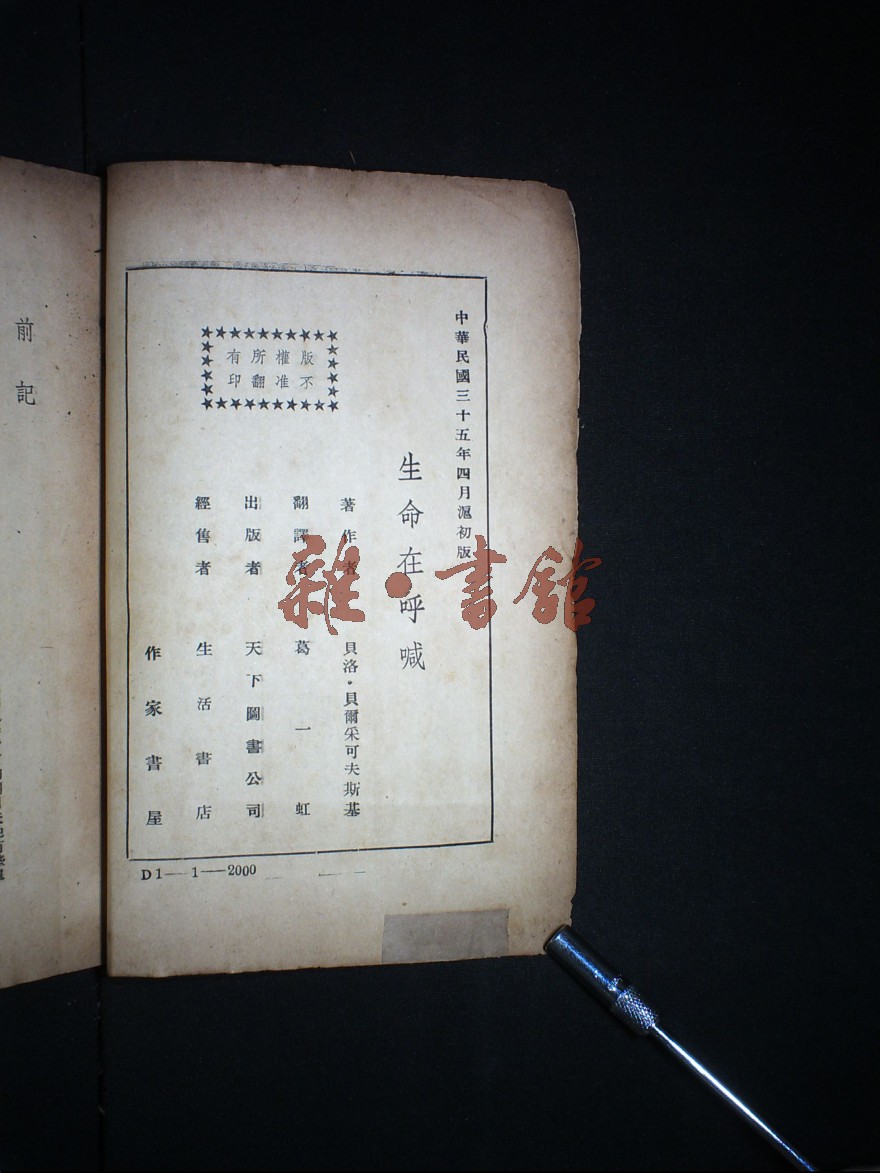 中華民國三十五年四月滬初版
生命在呼喊
著作者 貝洛·貝爾采可夫斯基
翻譯者 葛一虹
出版者 天下圖書公司
經售者 生活書店
作家書屋
版權所有
不准翻印
D1——1——2000
雜·書館
前記